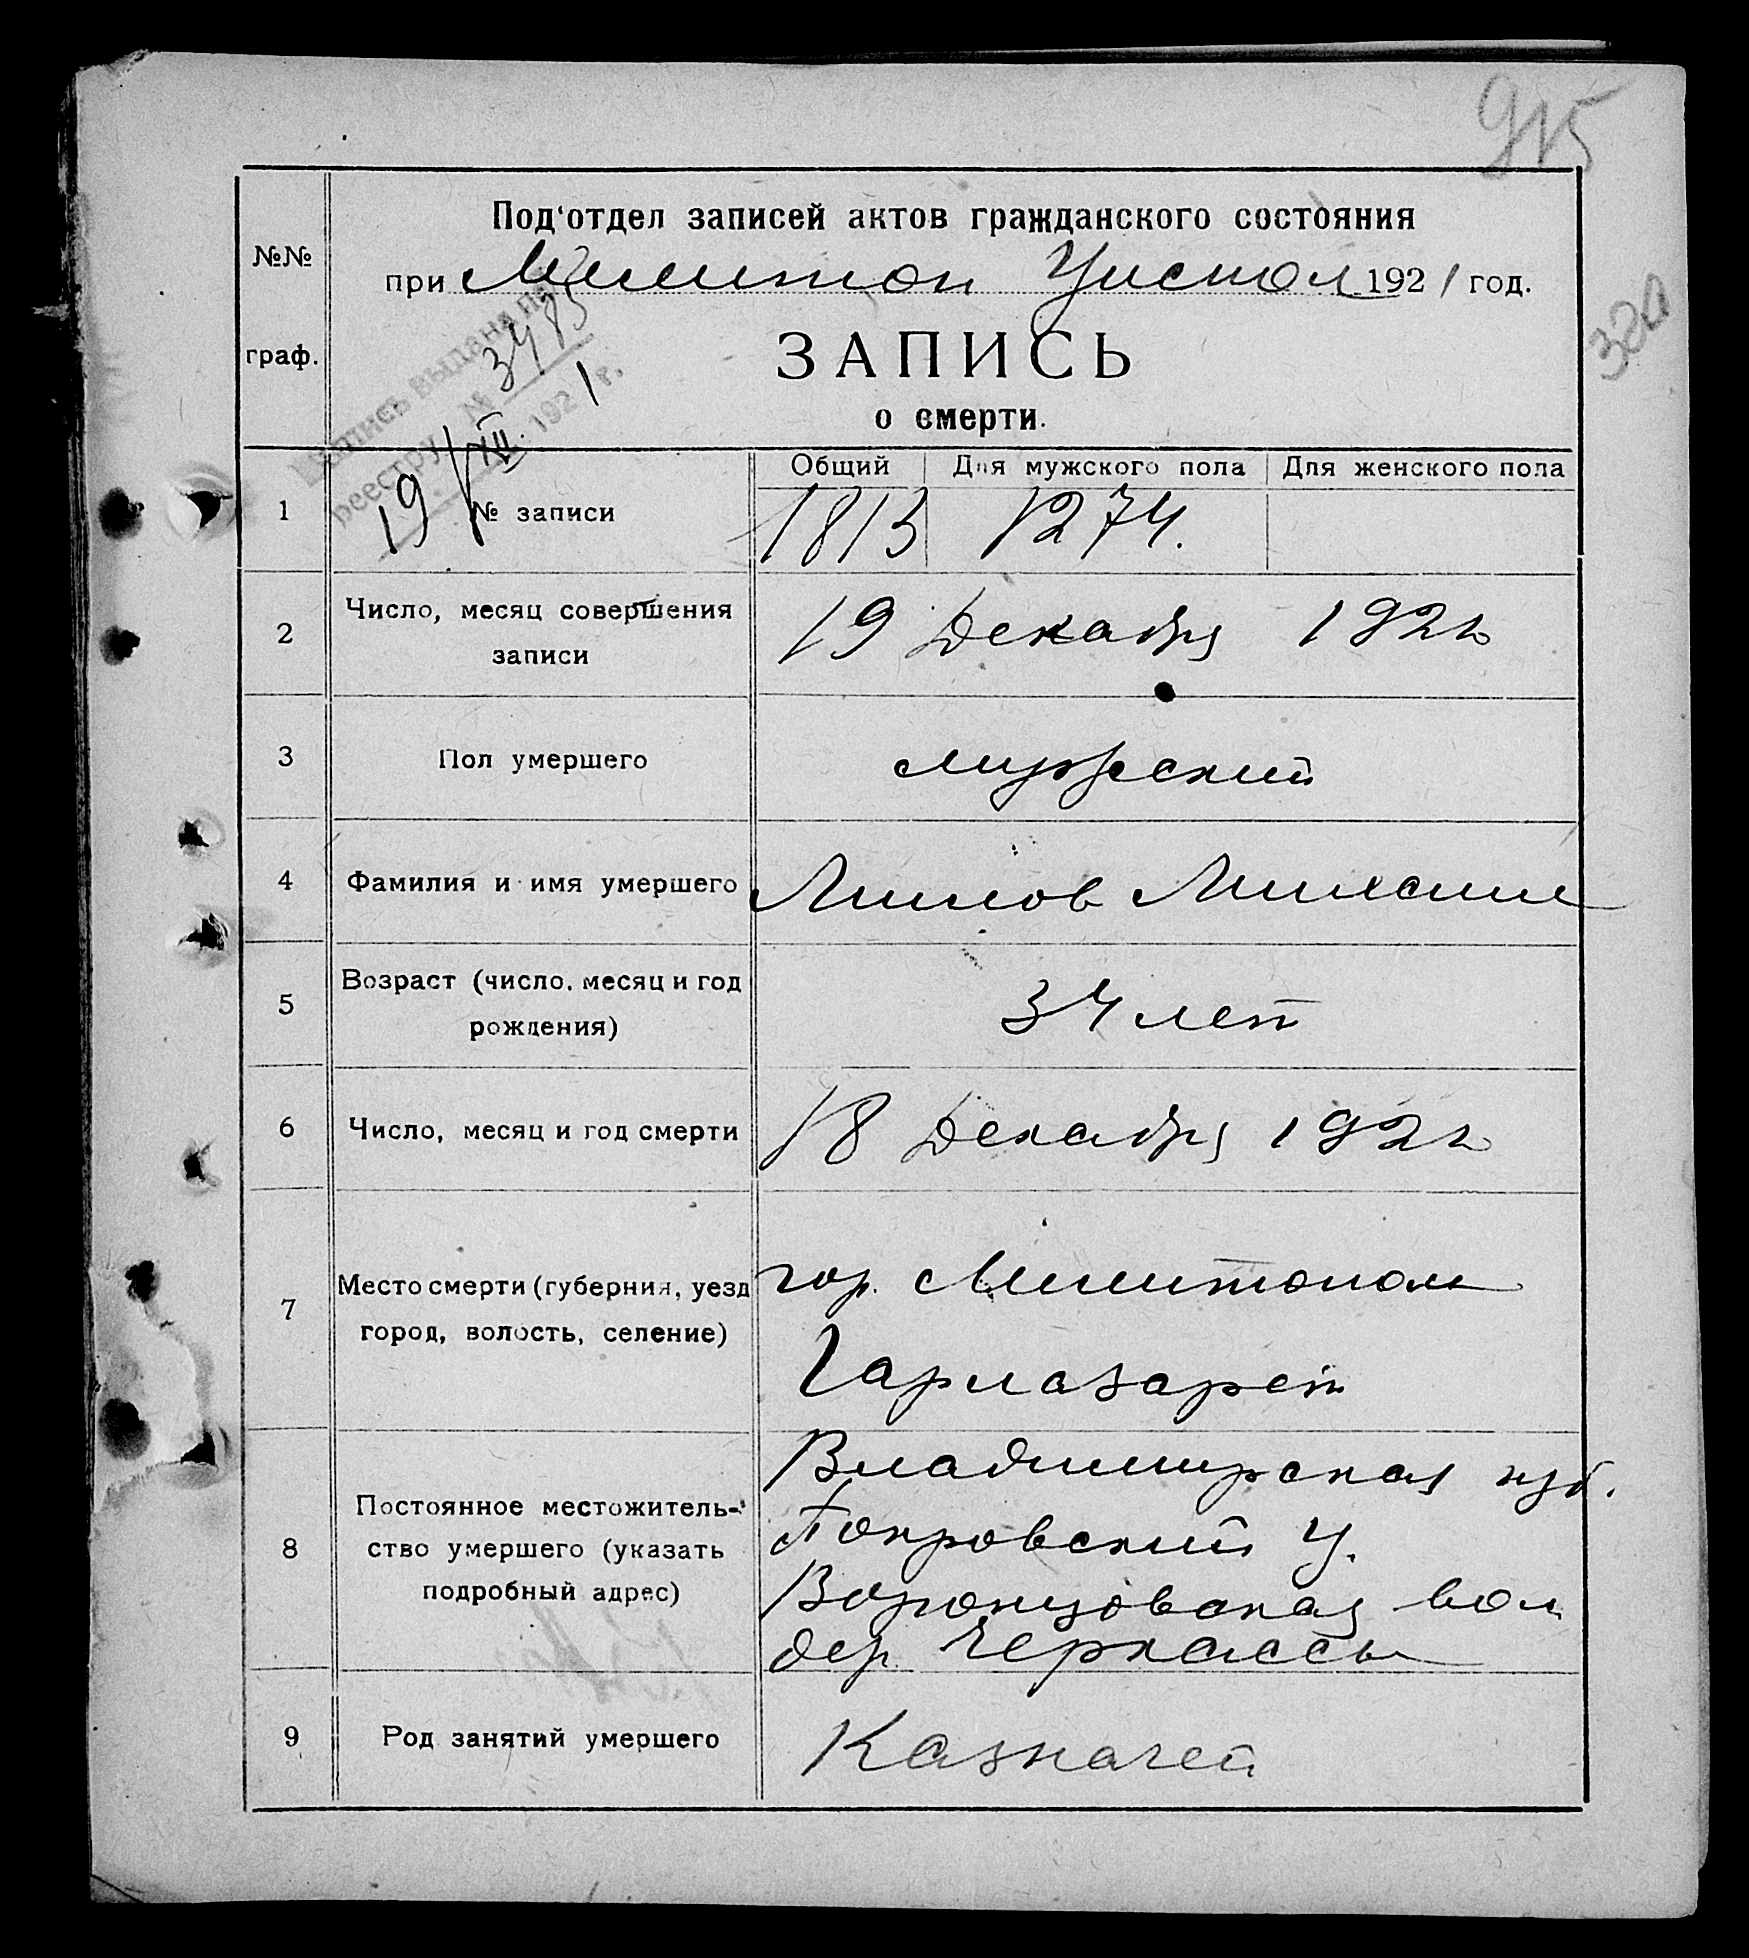 915
380
Под'отдел записей актов гражданского состояния
при Мелитоп Уисполк 1921 год.
ЗАПИСЬ
о смерти.
№№
граф.
Запись выдана по
реестру № 3483
19/XII 1921 г.
Общий Для мужского пола Для женского пола
1 № записи 1813 1274.
2 Число, месяц совершения
записи
19 Декабря 1921г
3 Пол умершего мужской
4 Фамилия и имя умершего Михаил
5 Возраст (число, месяц и год
рождения)
34 лет
6 Число, месяц и год смерти 18 Декабря 1921г
7 Место смерти (губерния, уезд
город, волость, селение)
гор. Мелитополь
Гарлазарет
8 Постоянное местожитель-
ство умершего (указать
подробный адрес)
Владимирская губ.
Покровский у.
Воронцовская вол
дер. Черкассы
9 Род занятий умершего Казначей